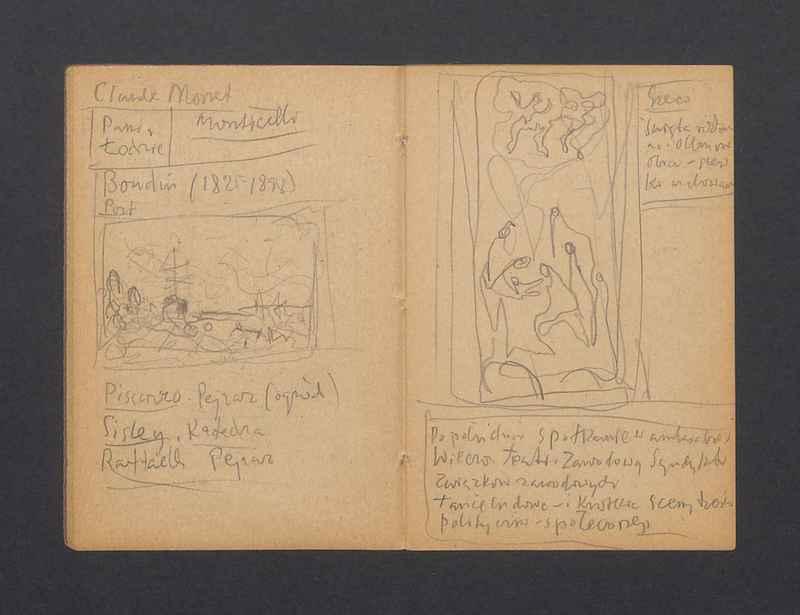 Claude Monet
Pani,
Łodzie
Monticelli
Boudin (1825-1898)
Port
Pissarro - Pejzaż (ogród)
Sisley, Katedra
Raffaelli Pejzaż
Greco
Święta rodzina
Po południu spotkanie w ambasadzie
Wieczór teatr. Zawodowy
związków zawodowych
tańce ludowe - i krótkie sceny
polityczno-społecznej